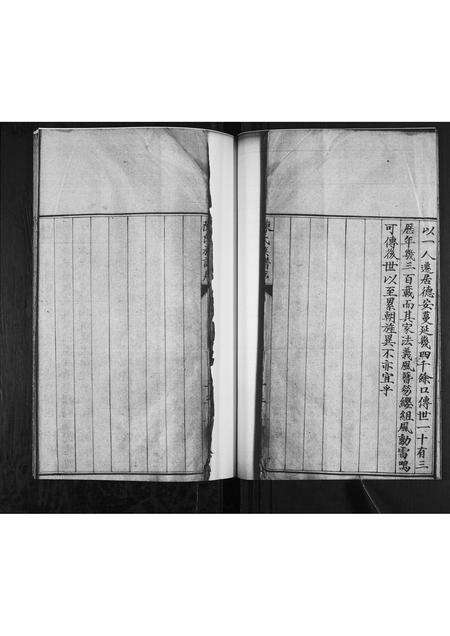 以一人遷居德安蔓延幾四千餘口傳世一十有三
歷年幾三百載而其家法義風簪笏纓組風動雷鳴
可傳後世以至累朝旌異不亦宜乎